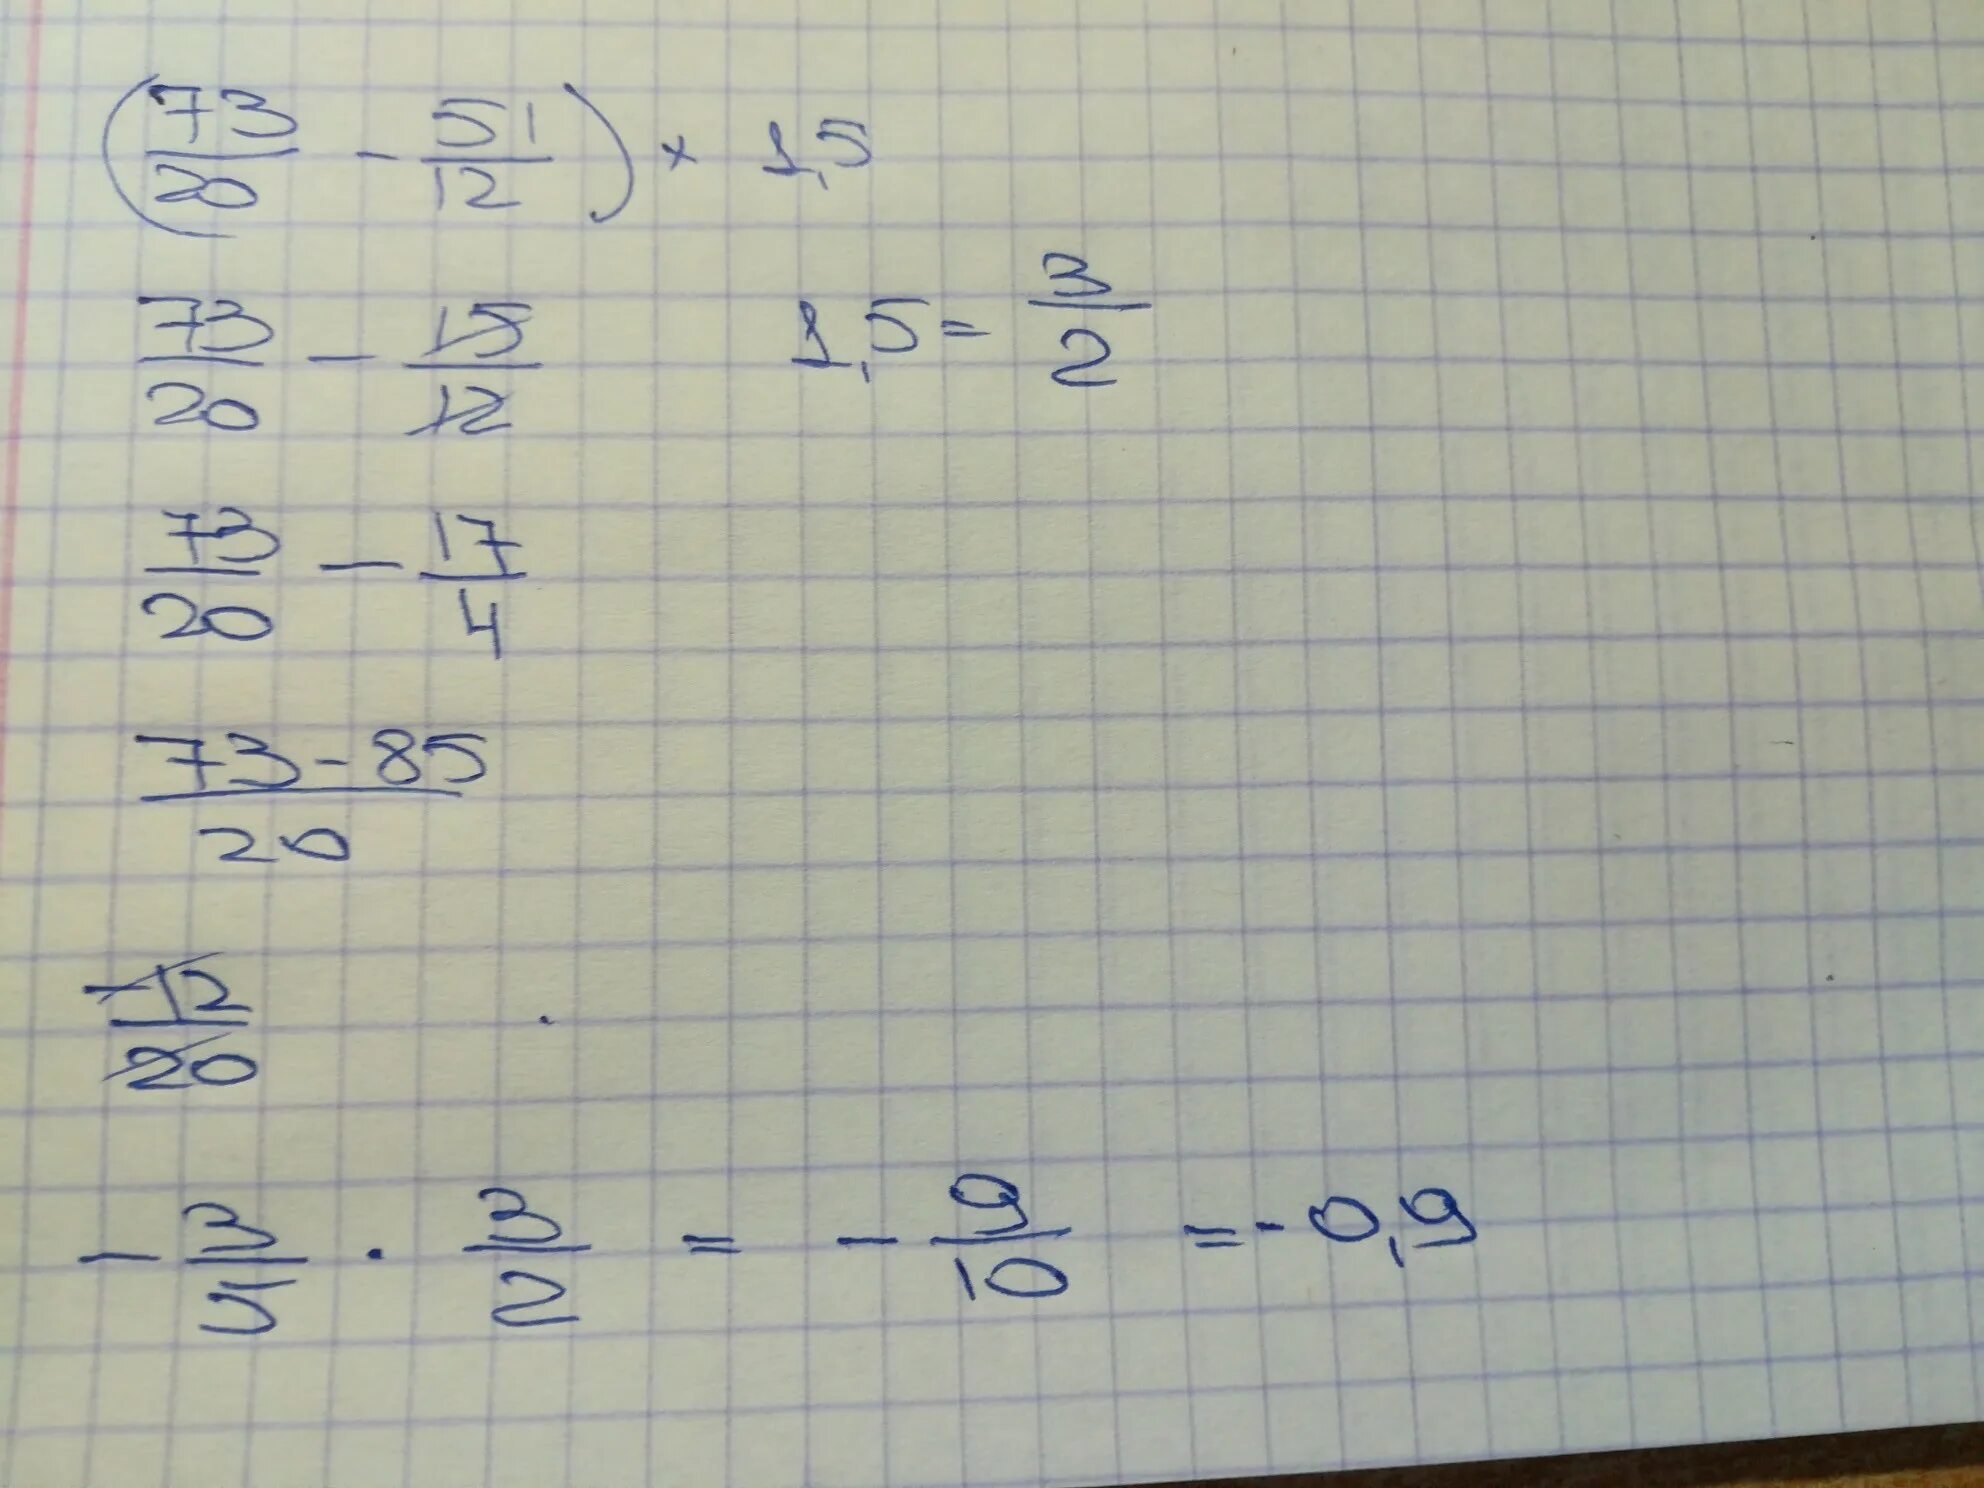 (73/20 - 51/12) × 1,5
73/20 - 15/12    1,5 = 3/2
73/20 - 17/4
73-85/20
-12/20
- 3/5 · 3/2 = - 9/10 = - 0,9